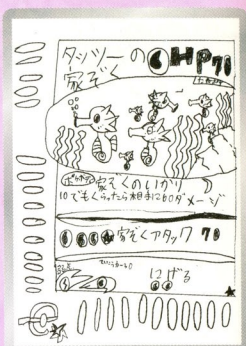 タッツーの HP 70
家ぞく
家ぞくのいかり
10でもくらったら相手に60ダメージ
家ぞくアタック 70
にげる